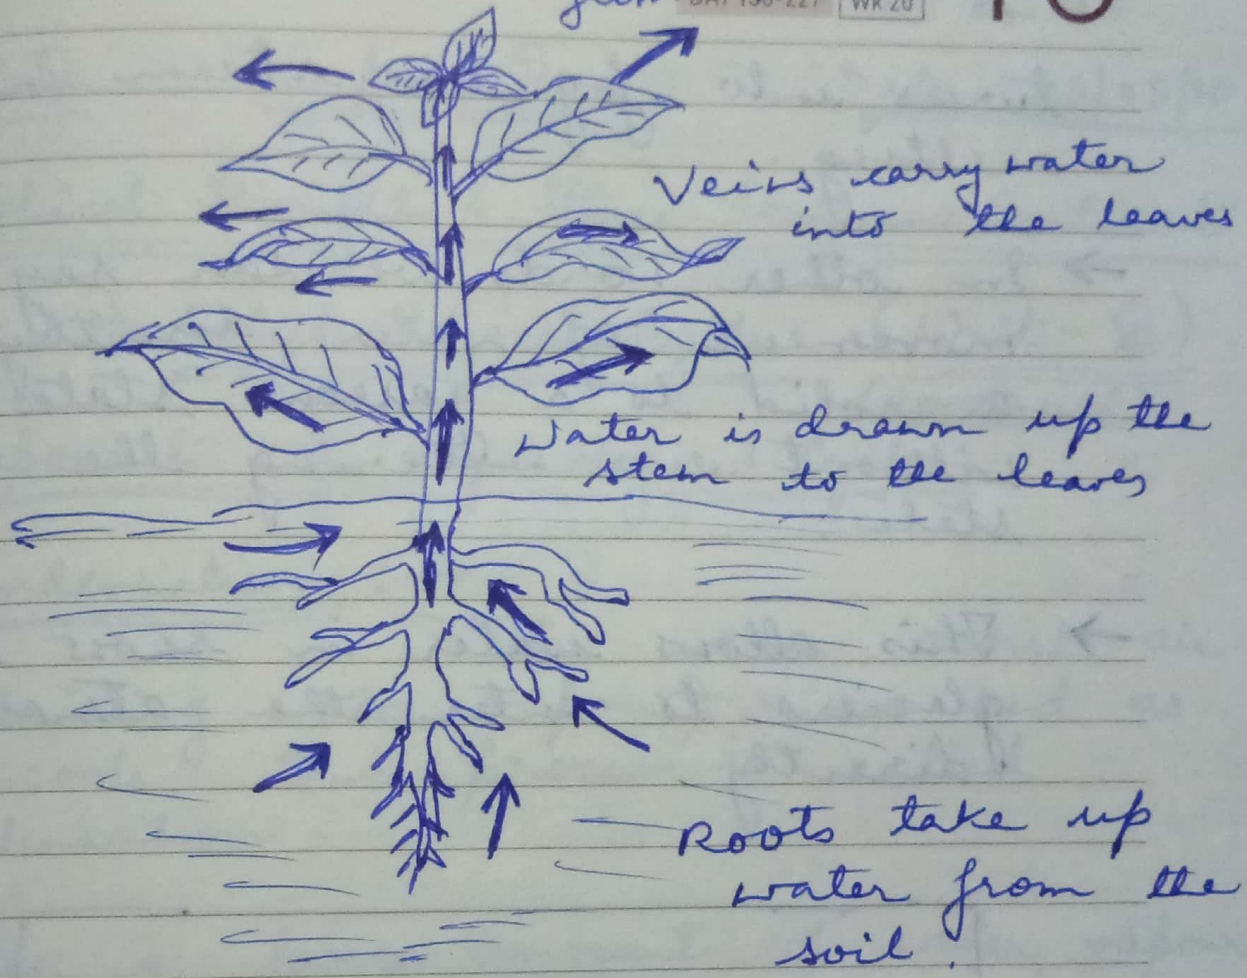 WK 20
Veins carry water
into the leaves
Water is drawn up the
stem to the leaves
Roots take up
water from the
soil.